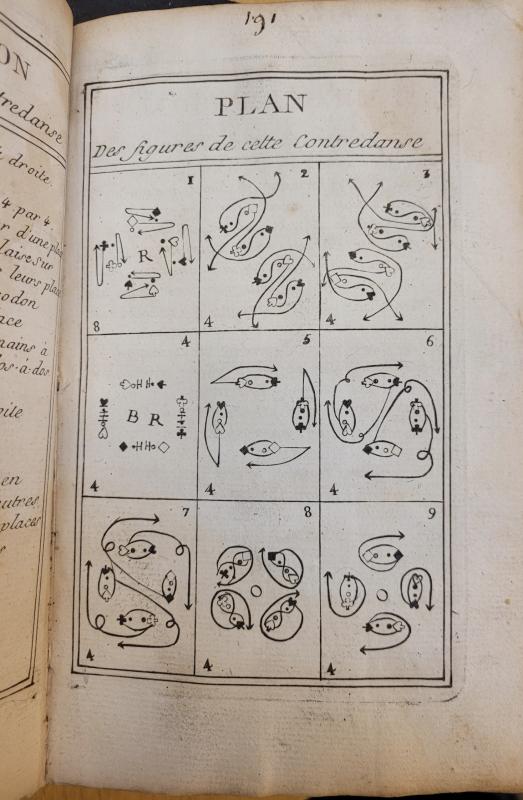 191
ON
tredanse
droite.
4 par 4
r d'une pla
laise sur
leurs place
odon
ace
mains à
dos-à-dos
oite
en
autres
places
PLAN
Des figures de cette Contredanse
1
R
8
2
4
3
4
4
B R
4
5
4
6
4
7
4
8
4
9
4